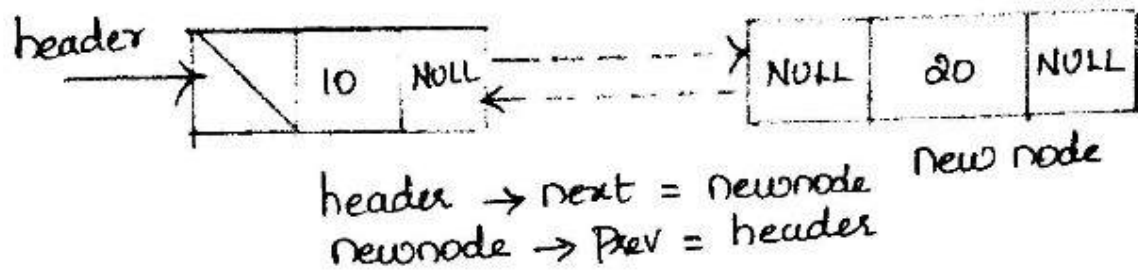 header
10
NULL
NULL
20
NULL
new node
header → next = newnode
newnode → Prev = header